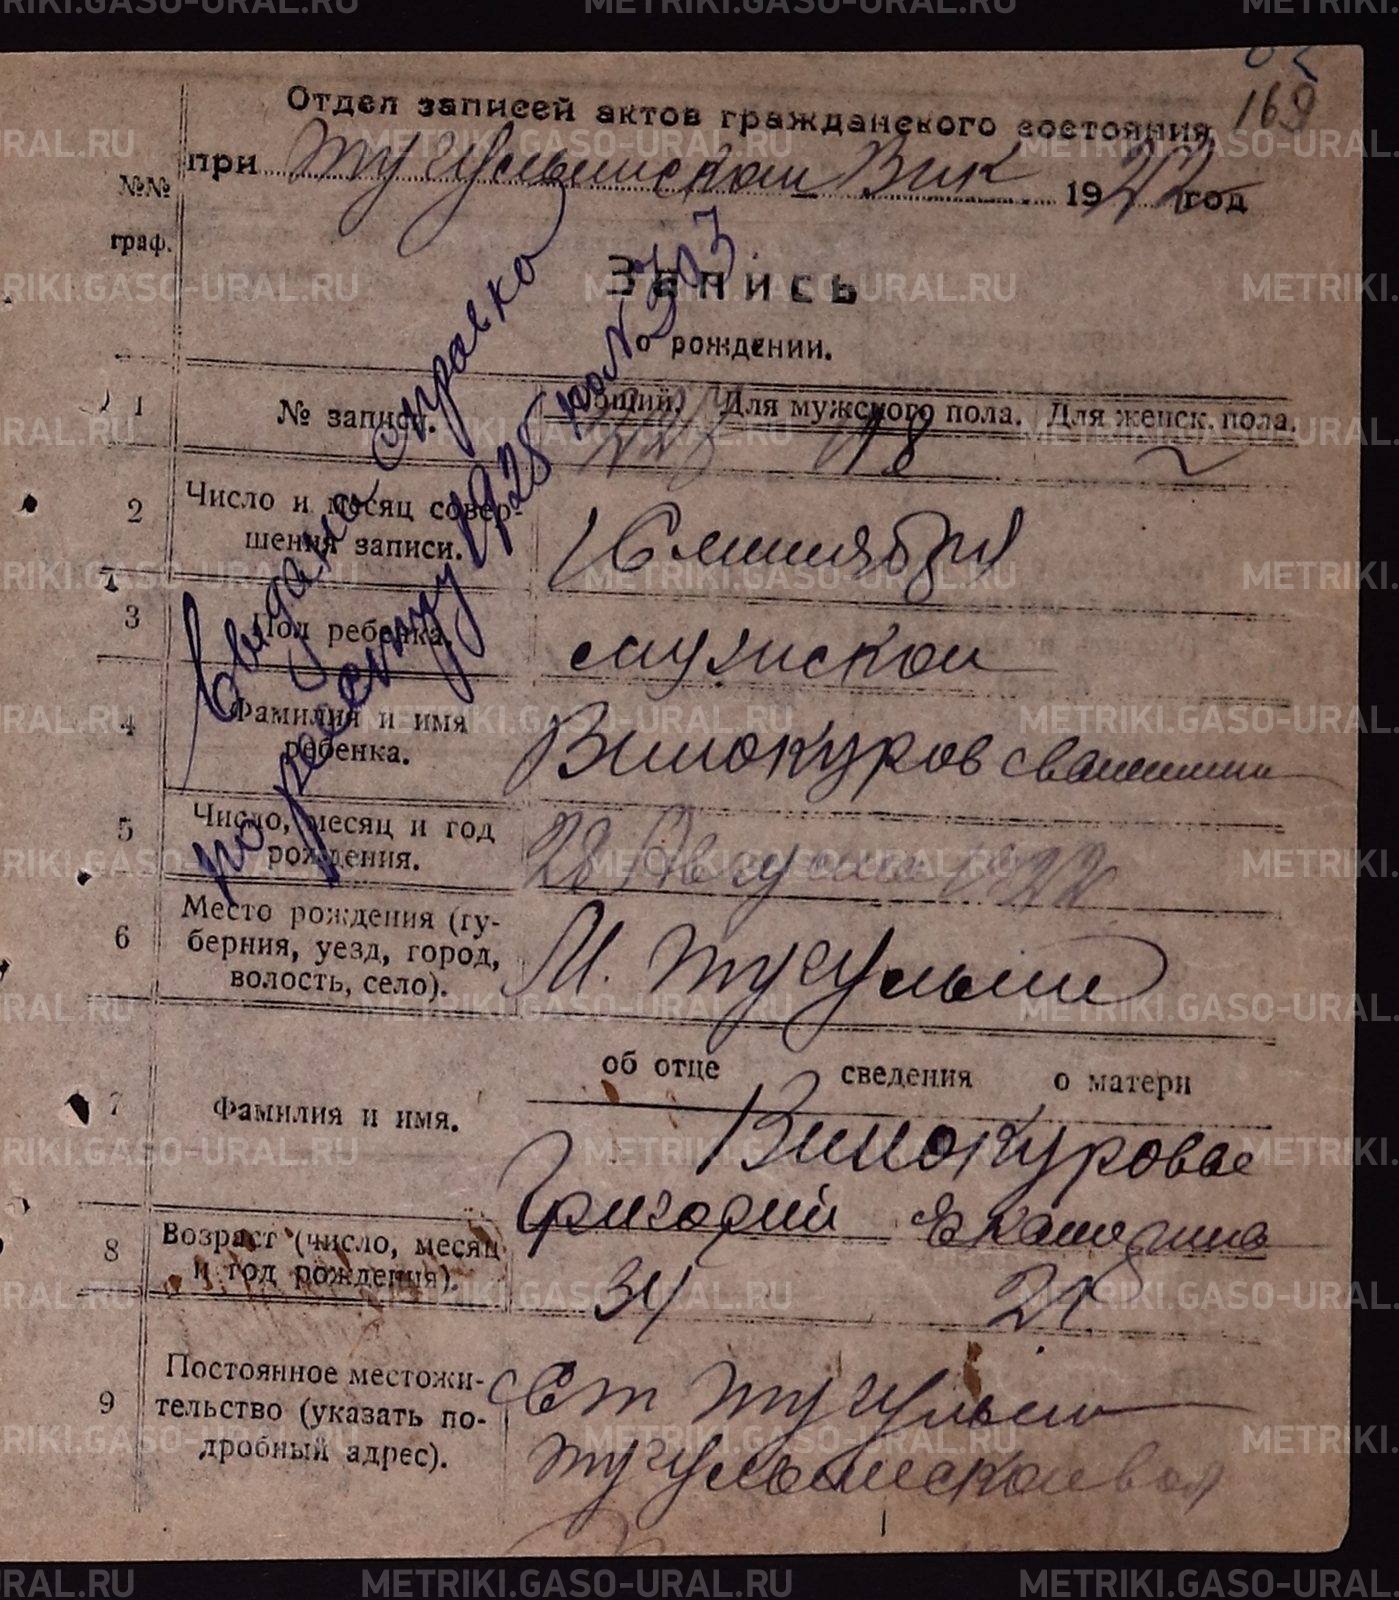 169
Отдел записей актов гражданского состояния
при Тугулымском Вик 1922 год
№№
граф.
Запись
о рождении.
Выдана справка
по реестру 1925 по №
1 № записи. Общий. Для мужского пола. Для женск. пола.
118
2 Число и месяц совер-
шения записи. 16 сентября
3 Пол ребенка. мужской
4 Фамилия и имя
ребенка. Винокуров
5 Число, месяц и год
рождения. 28 Августа 1922
6 Место рождения (гу-
берния, уезд, город,
волость, село). Тугулым
об отце сведения о матери
7 Фамилия и имя. Винокуровы
Григорий Екатерина
8 Возраст (число, месяц
и год рождения). 34
9 Постоянное местожи-
тельство (указать по-
дробный адрес). Ст Тугулым
Тугулымской вол
METRIKI.GASO-URAL.RU